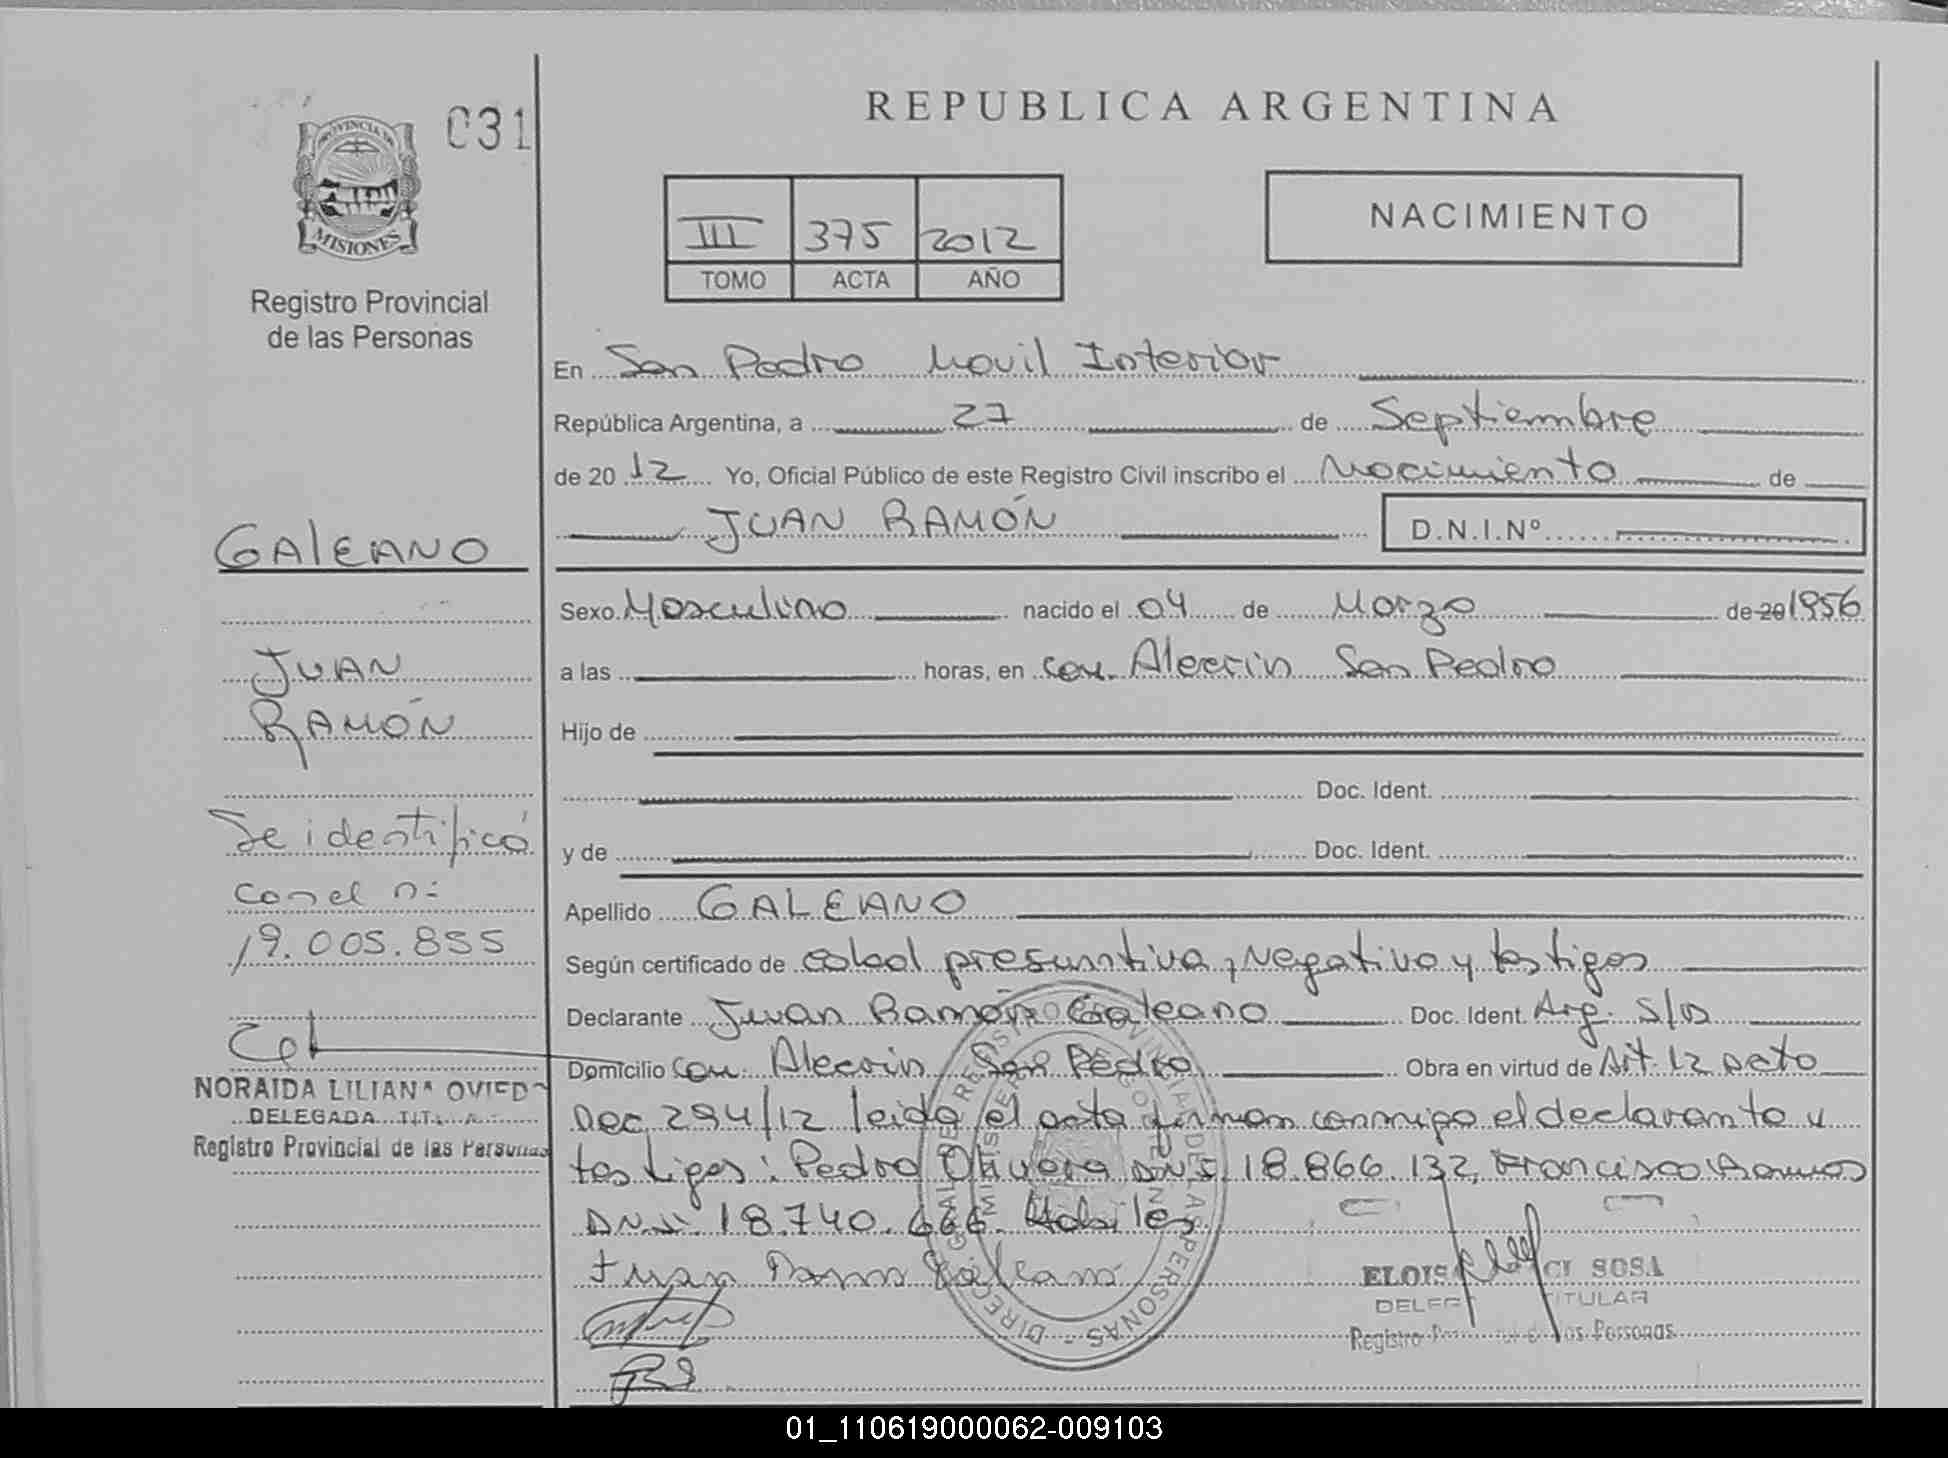 031
PROVINCIA DE
MISIONES
Registro Provincial
de las Personas
GALEANO
JUAN
RAMÓN
Se identificó
con el n:
19.005.855
NORAIDA LILIANA OVIEDO
DELEGADA TIT.
Registro Provincial de las Personas
REPUBLICA ARGENTINA
III 375 2012
TOMO ACTA AÑO
NACIMIENTO
En San Pedro Movil Interior
República Argentina, a 27 de Septiembre
de 20 12 Yo, Oficial Público de este Registro Civil inscribo el Nacimiento de
JUAN RAMÓN D.N.I.Nº
Sexo Masculino nacido el 04 de Marzo de 20 1956
a las horas, en Con. Alecrin San Pedro
Hijo de
Doc. Ident.
y de Doc. Ident.
Apellido GALEANO
Según certificado de edad presuntiva, negativa y testigos
Declarante Juan Ramón Galeano Doc. Ident. Arg. S/D
Domicilio Con. Alecrin San Pedro Obra en virtud de Art. 12 Dcto
Dec 294/12 leida el acta firman conmigo el declarante y
testigos: Pedro Olivera DNI 18.866.132, Francisco Ramos
DNI: 18.740.666. Habiles
Juan Ramon Galeano
DIREC. GRAL. DE REGISTRO PROVINCIAL DE LAS PERSONAS
SOSA
TITULAR
Registro Provincial de las Personas
01_110619000062-009103